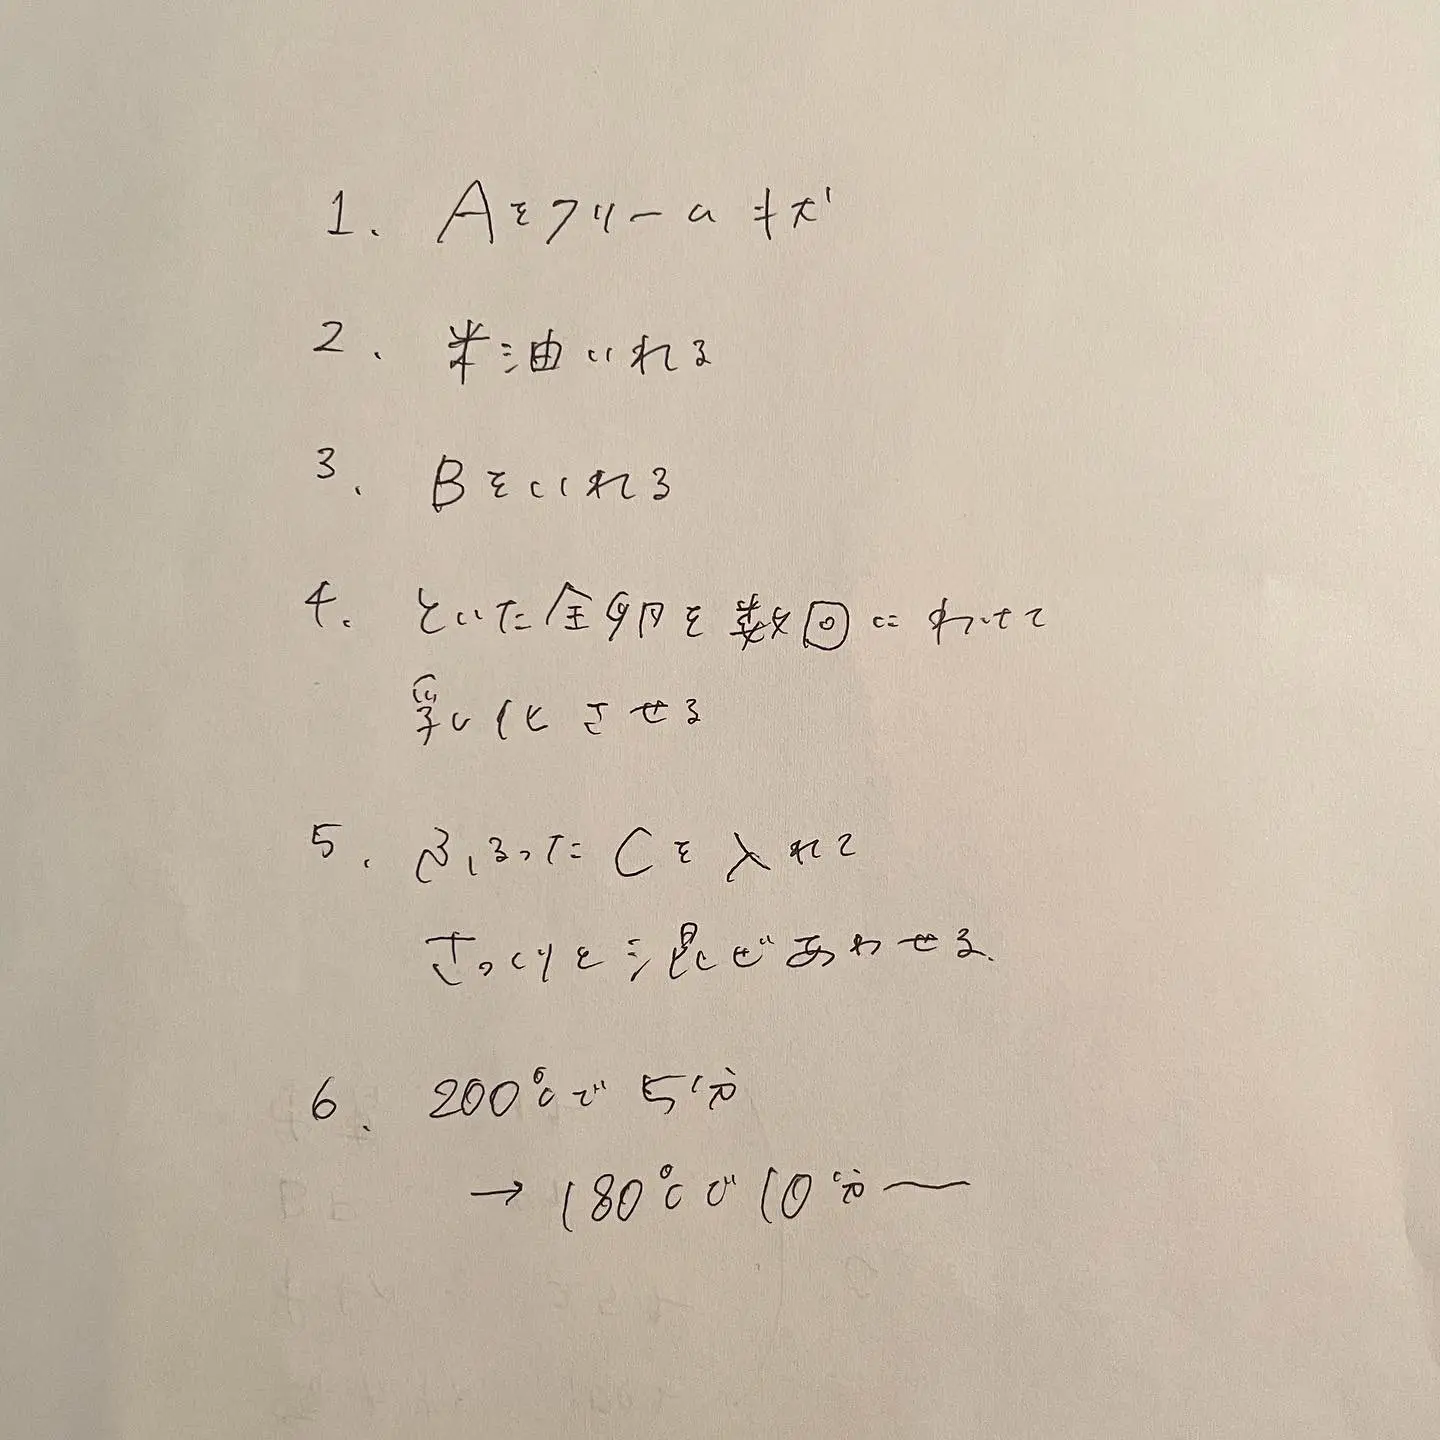 1. Aをクリーム状
2. 米油いれる
3. Bをいれる
4. といた全卵を数回にわけて
乳化させる
5. ふるった Cを入れて
さっくりと混ぜあわせる
6. 200℃で 5分
→ 180℃で10分〜